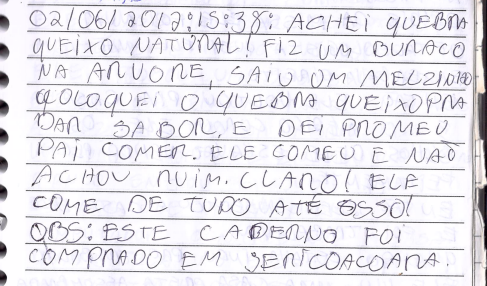 02/06/2012:15:38: ACHEI QUEBRA
QUEIXO NATURAL! FIZ UM BURACO
NA ARVORE, SAIU UM MELZINHO
COLOQUEI O QUEBRA QUEIXO PRA
DAR SABOR, E DEI PRO MEU
PAI COMER. ELE COMEU E NAO
ACHOU RUIM. CLARO! ELE
COME DE TUDO ATÉ OSSO!
OBS: ESTE CADERNO FOI
COMPRADO EM JERICOACOARA.